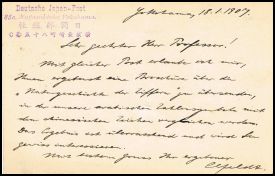 Deutsche Japan-Post
Yokohama, 18.1.1907.
Sehr geehrter Herr Professor!
Mit gleicher Post erlaube ich mir,
Ihnen ergebenst eine Broschüre über die
"Naturgeschichte der Ziffern" zu übersenden,
in der die arabischen Zahlzeichen mit
den chinesischen Zeichen verglichen werden.
Das Ergebnis ist überraschend und wird Sie
gewiss interessieren.
Mit bestem Gruss Ihr ergebener